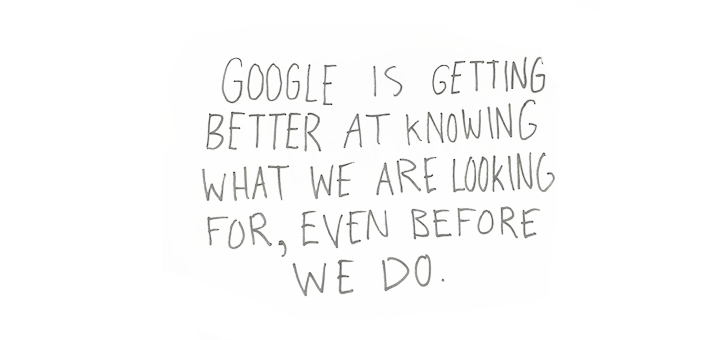 GOOGLE IS GETTING
BETTER AT KNOWING
WHAT WE ARE LOOKING
FOR, EVEN BEFORE
WE DO.